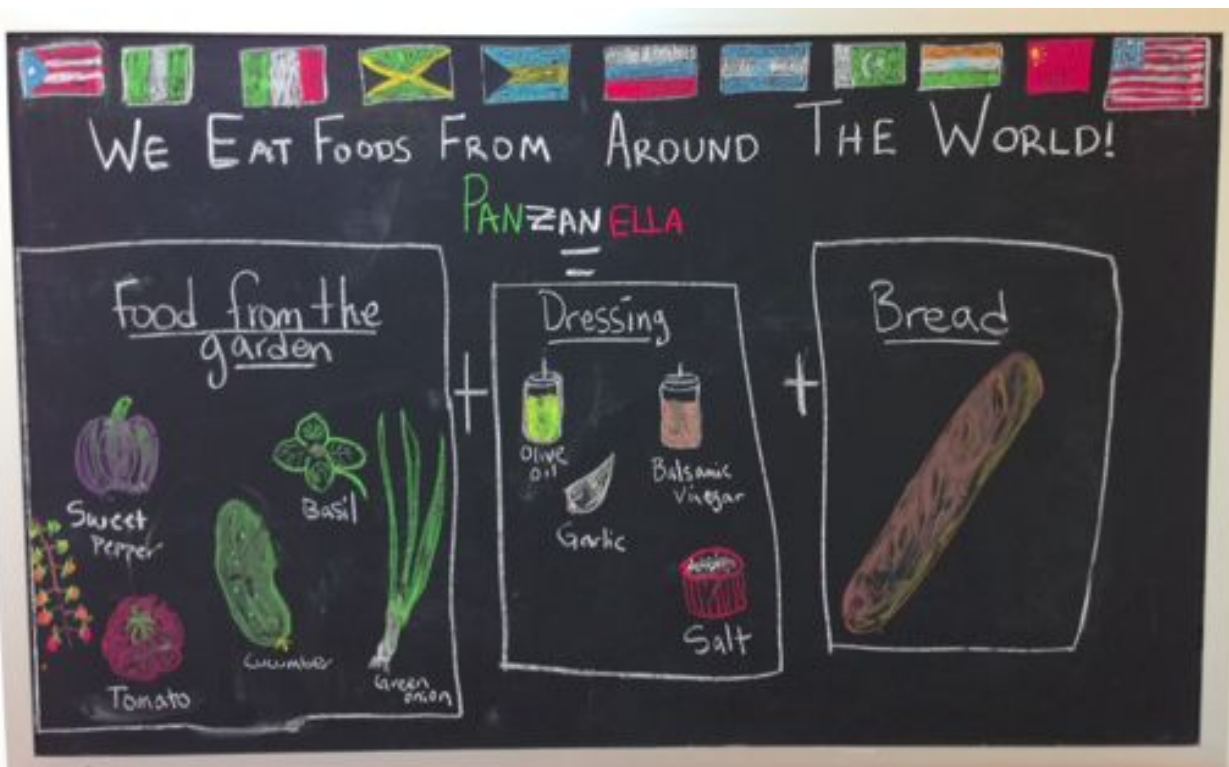 WE EAT FOODS FROM AROUND THE WORLD!
PANZANELLA
=
Food from the
garden
Sweet
Pepper
Basil
Tomato
Cucumber
Green
onion
+
Dressing
Olive
oil
Balsamic
Vinegar
Garlic
Salt
+
Bread